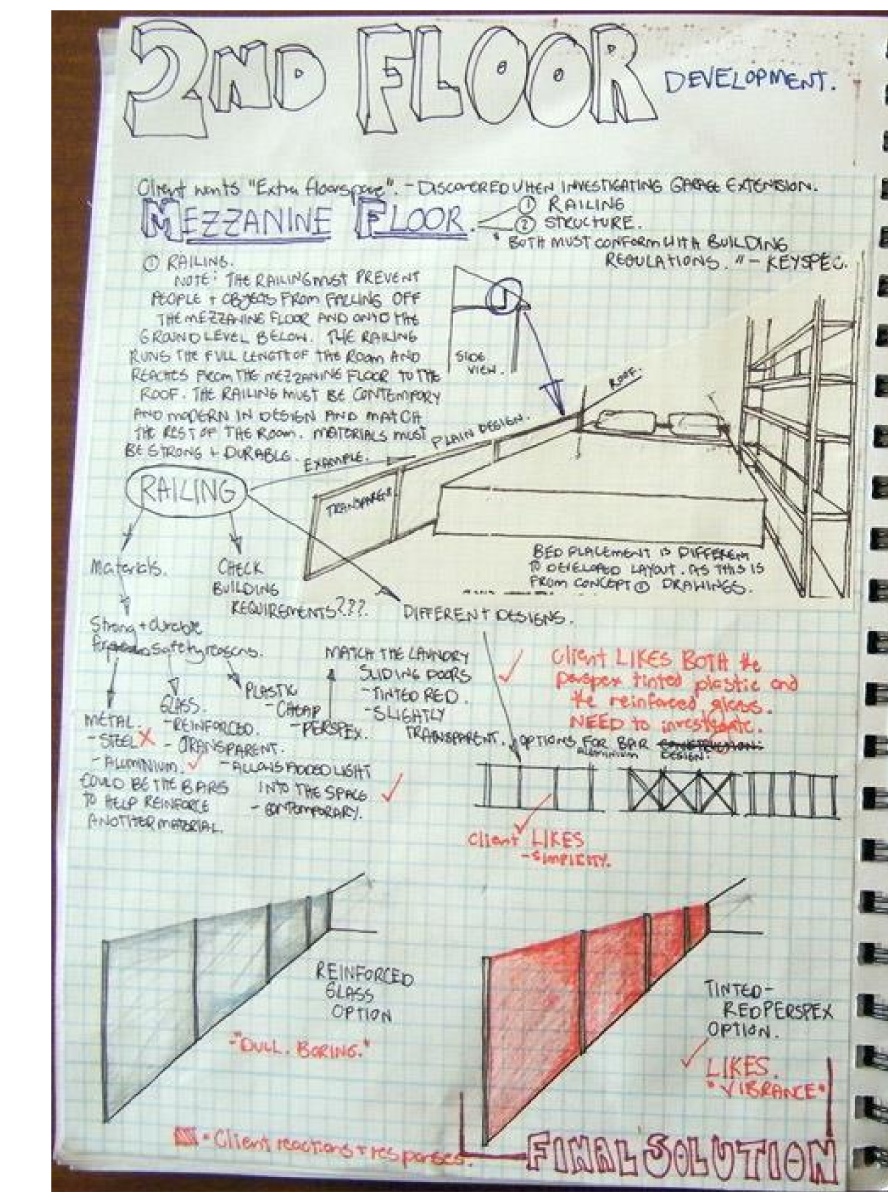 2ND FLOOR DEVELOPMENT.
Client wants "Extra floorspace". - DISCOVERED WHEN INVESTIGATING GARAGE EXTENSION.
MEZZANINE FLOOR.
① RAILING
② STRUCTURE.
* BOTH MUST CONFORM WITH BUILDING
REGULATIONS. " - KEYSPEC.
① RAILING.
NOTE: THE RAILING MUST PREVENT
PEOPLE + OBJECTS FROM FALLING OFF
THE MEZZANINE FLOOR AND ONTO THE
GROUND LEVEL BELOW. THE RAILING
RUNS THE FULL LENGTH OF THE ROOM AND
REACHES FROM THE MEZZANINE FLOOR TO THE
ROOF. THE RAILING MUST BE CONTEMPORY
AND MODERN IN DESIGN AND MATCH
THE REST OF THE ROOM. MATERIALS MUST
BE STRONG + DURABLE.
SIDE
VIEW.
ROOF.
EXAMPLE.
PLAIN DESIGN.
TRANSPARENT.
RAILING
BED PLACEMENT IS DIFFEREN
TO DEVELOPED LAYOUT. AS THIS IS
FROM CONCEPT ① DRAWINGS.
Materials.
CHECK
BUILDING
REQUIREMENTS???.
DIFFERENT DESIGNS.
Strong + durable
safety reasons.
METAL.
- STEEL
- ALUMINIUM.
COULD BE THE BARS
TO HELP REINFORCE
ANOTHER MATERIAL.
GLASS.
- REINFORCED.
- TRANSPARENT.
- ALLOWS ADDED LIGHT
INTO THE SPACE
- CONTEMPORARY.
PLASTIC
- CHEAP
- PERSPEX.
MATCH THE LAUNDRY
SLIDING DOORS
- TINTED RED.
- SLIGHTLY
TRANSPARENT.
Client LIKES BOTH the
perspex tinted plastic and
the reinforced glass.
NEED to investigate.
OPTIONS FOR BAR CONSTRUCTION:
ALUMINIUM DESIGN:
Client LIKES
- SIMPLICITY.
REINFORCED
GLASS
OPTION
- "DULL. BORING."
TINTED-
RED PERSPEX
OPTION.
LIKES.
"VIBRANCE"
= Client reactions + responses.
FINAL SOLUTION